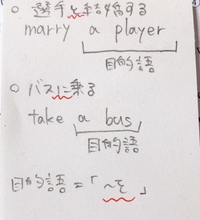 ○ 選手と結婚する
marry a player
目的語
○ バスに乗る
take a bus
目的語
目的語=「~を」